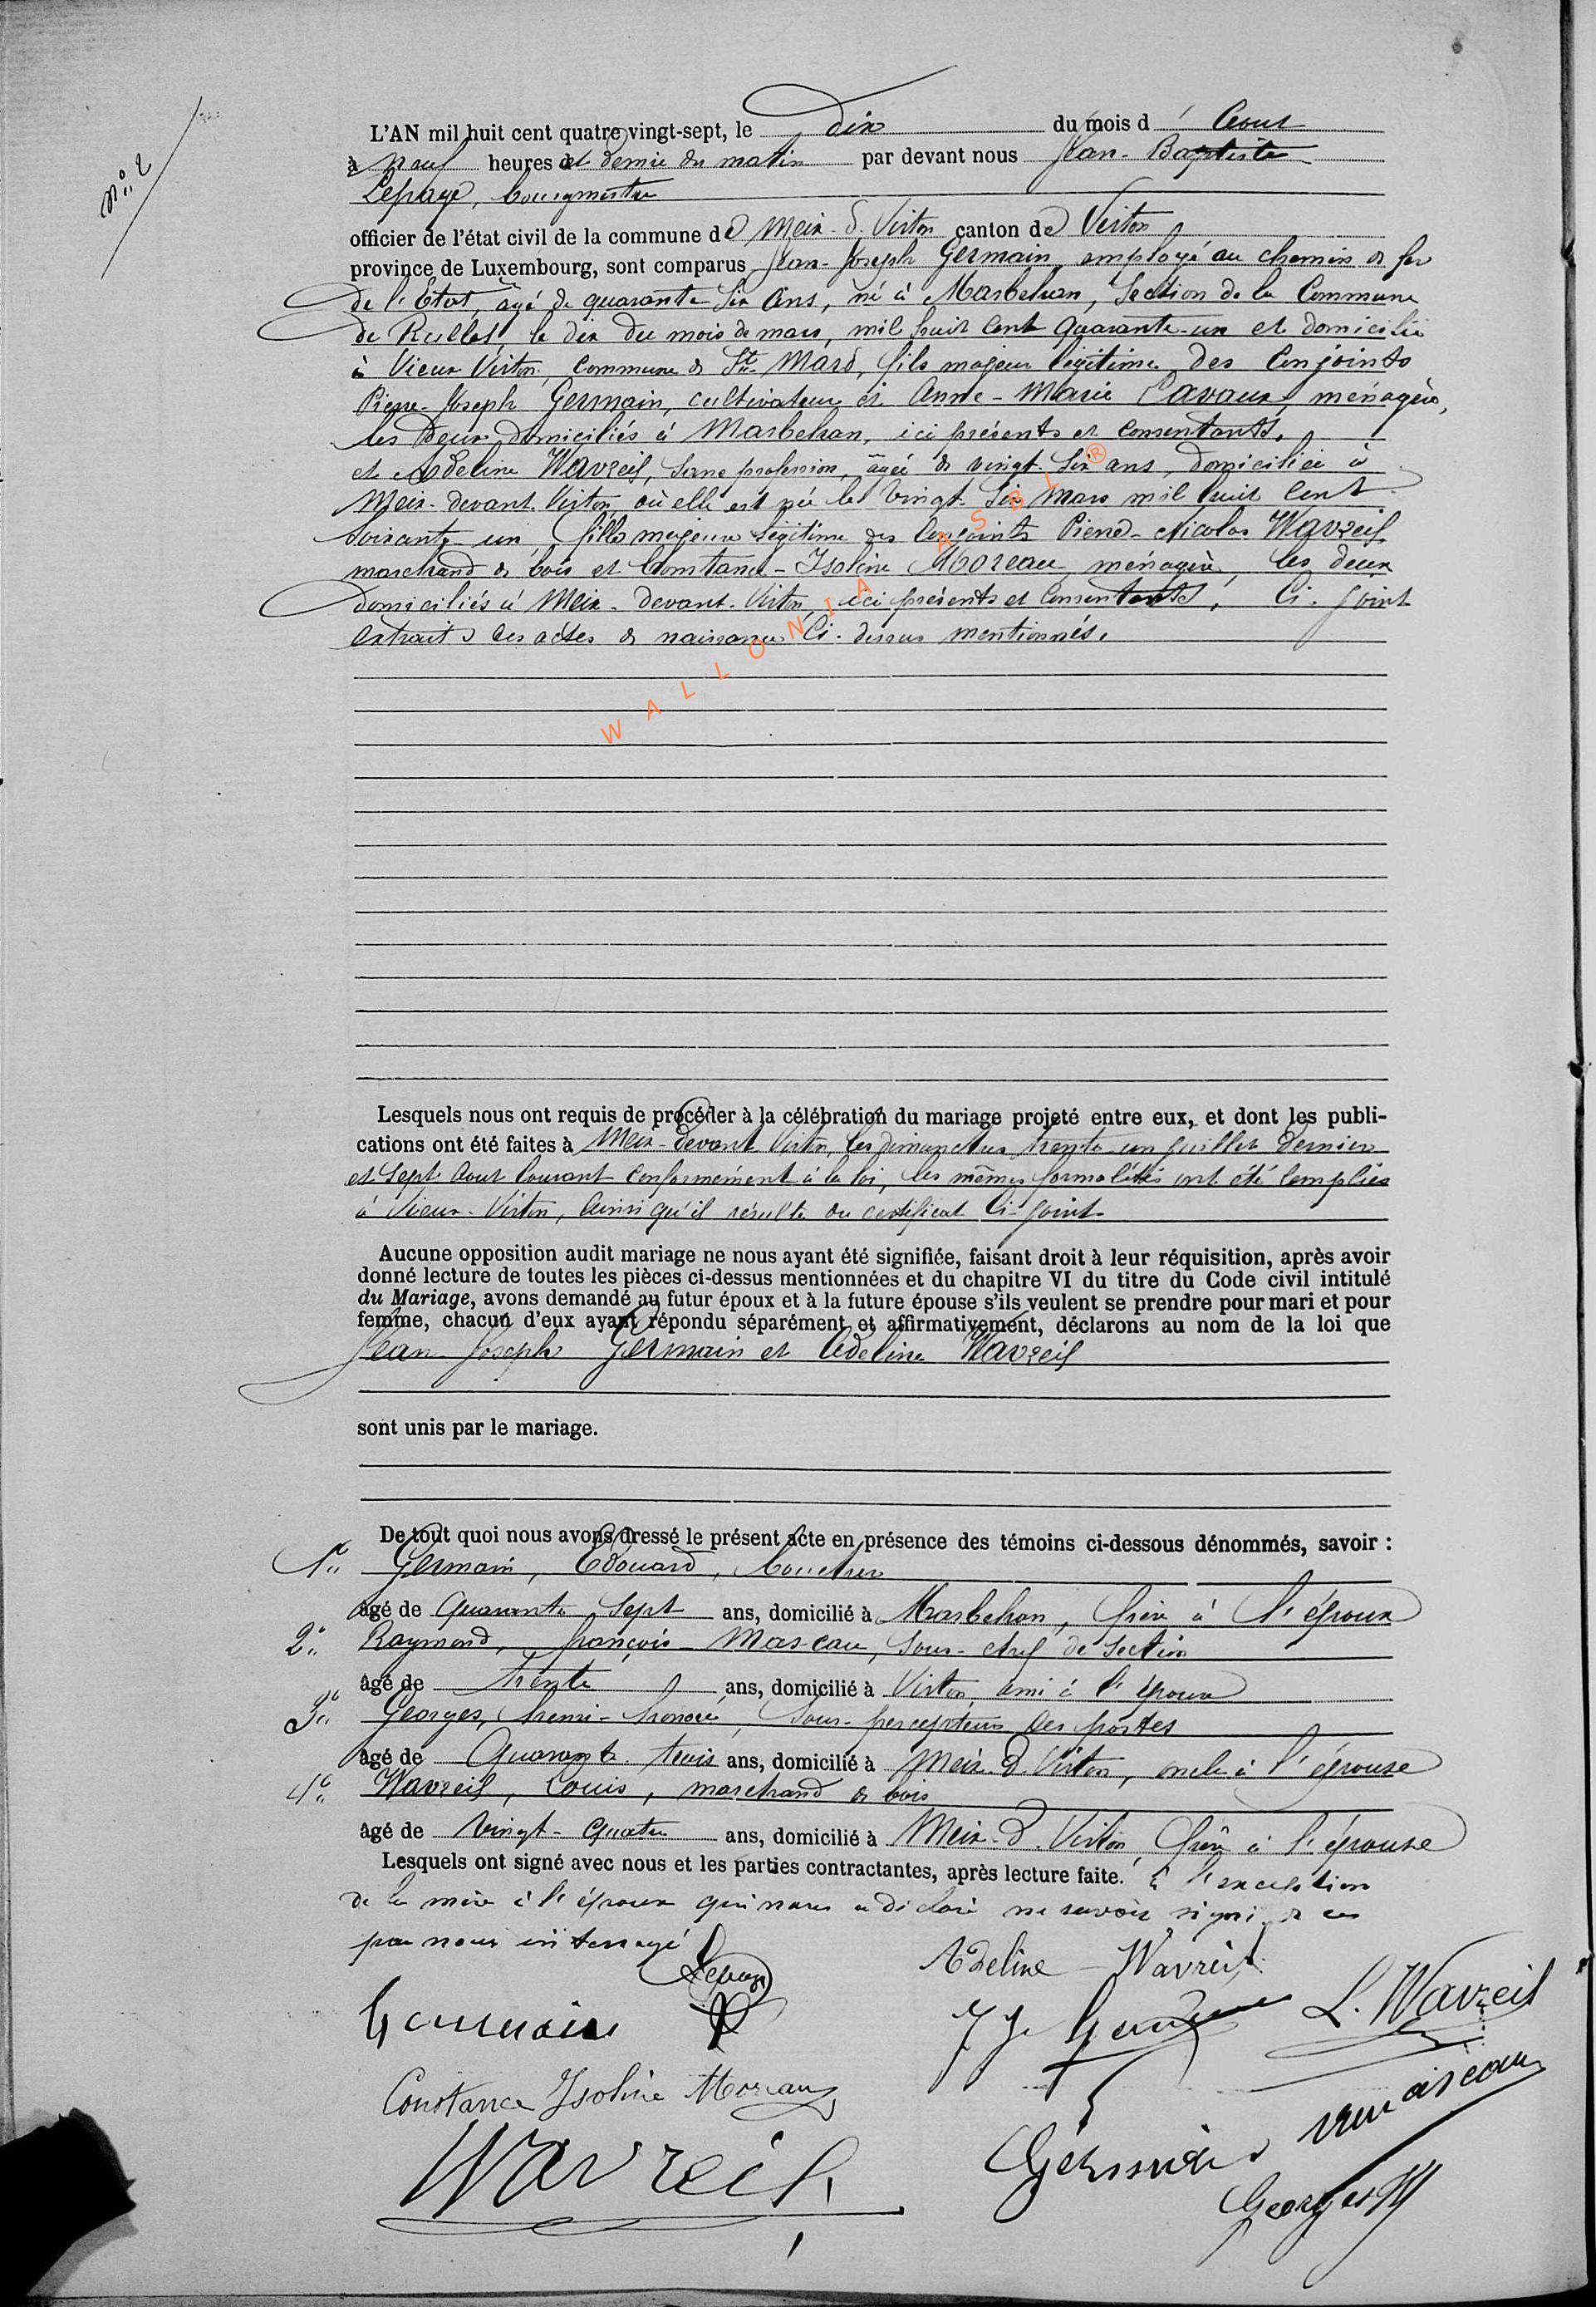 N° 2
L'AN mil huit cent quatre vingt-sept, le dix du mois d'Aout
à neuf heures et demie du matin par devant nous Jean-Baptiste
Lepage, bourgmestre
officier de l'état civil de la commune de Meix-d-Virton canton de Virton
province de Luxembourg, sont comparus Jean-Joseph Germain, employé au chemin de fer
de l'État, âgé de quarante six ans, né à Marbehan, Section de la Commune
de Rulles, le dix du mois de mars, mil huit cent quarante-un et domicilié
à Vieux Virton, Commune de St Mard, fils majeur légitime des Conjoints
Pierre-Joseph Germain, cultivateur et Anne-Marie Lavaux, ménagère,
les deux domiciliés à Marbehan, ici présents et Consentants,
et Adeline Wavreil, sans profession, âgée de vingt six ans, domiciliée à
Meix-devant-Virton, où elle est née le vingt six mars mil huit cent
soixante un, fille majeure légitime des Conjoints Pierre-Nicolas Wavreil,
marchand de bois et Constance-Isoline Moreau, ménagère, les deux
domiciliés à Meix-devant-Virton, ici présents et Consentants, Ci-joint
extraits des actes de naissance Ci-dessus mentionnés.
WALLONIA ASBL ®
Lesquels nous ont requis de procéder à la célébration du mariage projeté entre eux, et dont les publi-
cations ont été faites à Meix-devant Virton, les dimanches trente un juillet dernier
et sept aout courant conformément à la loi, les mêmes formalités ont été remplies
à Vieux-Virton, ainsi qu'il résulte du certificat Ci-joint
Aucune opposition audit mariage ne nous ayant été signifiée, faisant droit à leur réquisition, après avoir
donné lecture de toutes les pièces ci-dessus mentionnées et du chapitre VI du titre du Code civil intitulé
du Mariage, avons demandé au futur époux et à la future épouse s'ils veulent se prendre pour mari et pour
femme, chacun d'eux ayant répondu séparément et affirmativement, déclarons au nom de la loi que
Jean Joseph Germain et Adeline Wavreil
sont unis par le mariage.
De tout quoi nous avons dressé le présent acte en présence des témoins ci-dessous dénommés, savoir :
1° Germain, Édouard, boucher
âgé de quarante sept ans, domicilié à Marbehan, frère à l'époux
2° Raymond, françois-Masceau, sous-chef de section
âgé de trente ans, domicilié à Virton, ami à l'époux
3° Georges, henri-honoré, sous-percepteur des postes
âgé de quarante trois ans, domicilié à Meix-d-Virton, oncle à l'épouse
4° Wavreil, Louis, marchand de bois
âgé de vingt-quatre ans, domicilié à Meix-d-Virton, frère à l'épouse
Lesquels ont signé avec nous et les parties contractantes, après lecture faite. à l'exception
de la mère à l'époux qui nous a déclaré ne savoir signer de ce
par nous interrogé
Lepage
Adeline Wavreil
Germain
J J Germain
L. Wavreil
Constance Isoline Moreau
Germain
Wavreil
Georges H